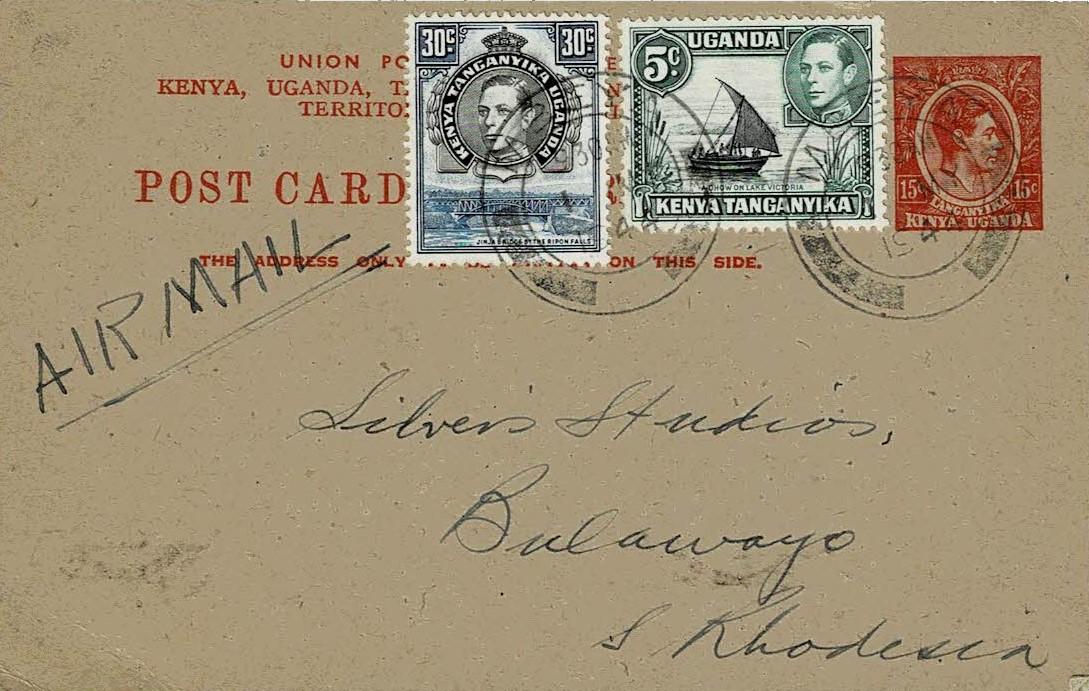 UNION PO
KENYA, UGANDA, T
TERRITO
POST CARD
THE ADDRESS ONLY ON THIS SIDE.
30c 30c
KENYA TANGANYIKA UGANDA
JINJA BRIDGE BY THE RIPON FALLS
UGANDA
5c
A DHOW ON LAKE VICTORIA
KENYA TANGANYIKA
15c 15c
TANGANYIKA
KENYA UGANDA
AIR MAIL
Silver's Studios,
Bulawayo
S Rhodesia